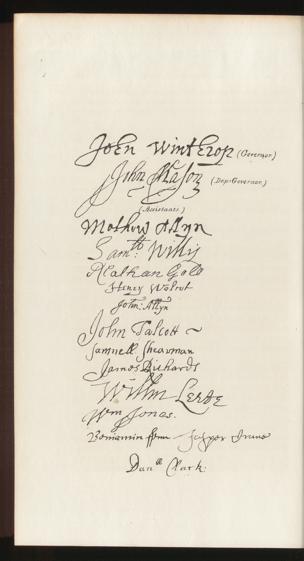 John Winthrop (Governor)
John Mason (Dep: Governor)
(Assistants)
Mathew Allyn
Samll Willis
Nathan Gold
Henry Wolcut
John: Allyn
John Talcott
Samuell Shearman
James Richards
Willm Leete
Wm Jones.
Benjamin ffenn Jasper Crane
Danll Clark.